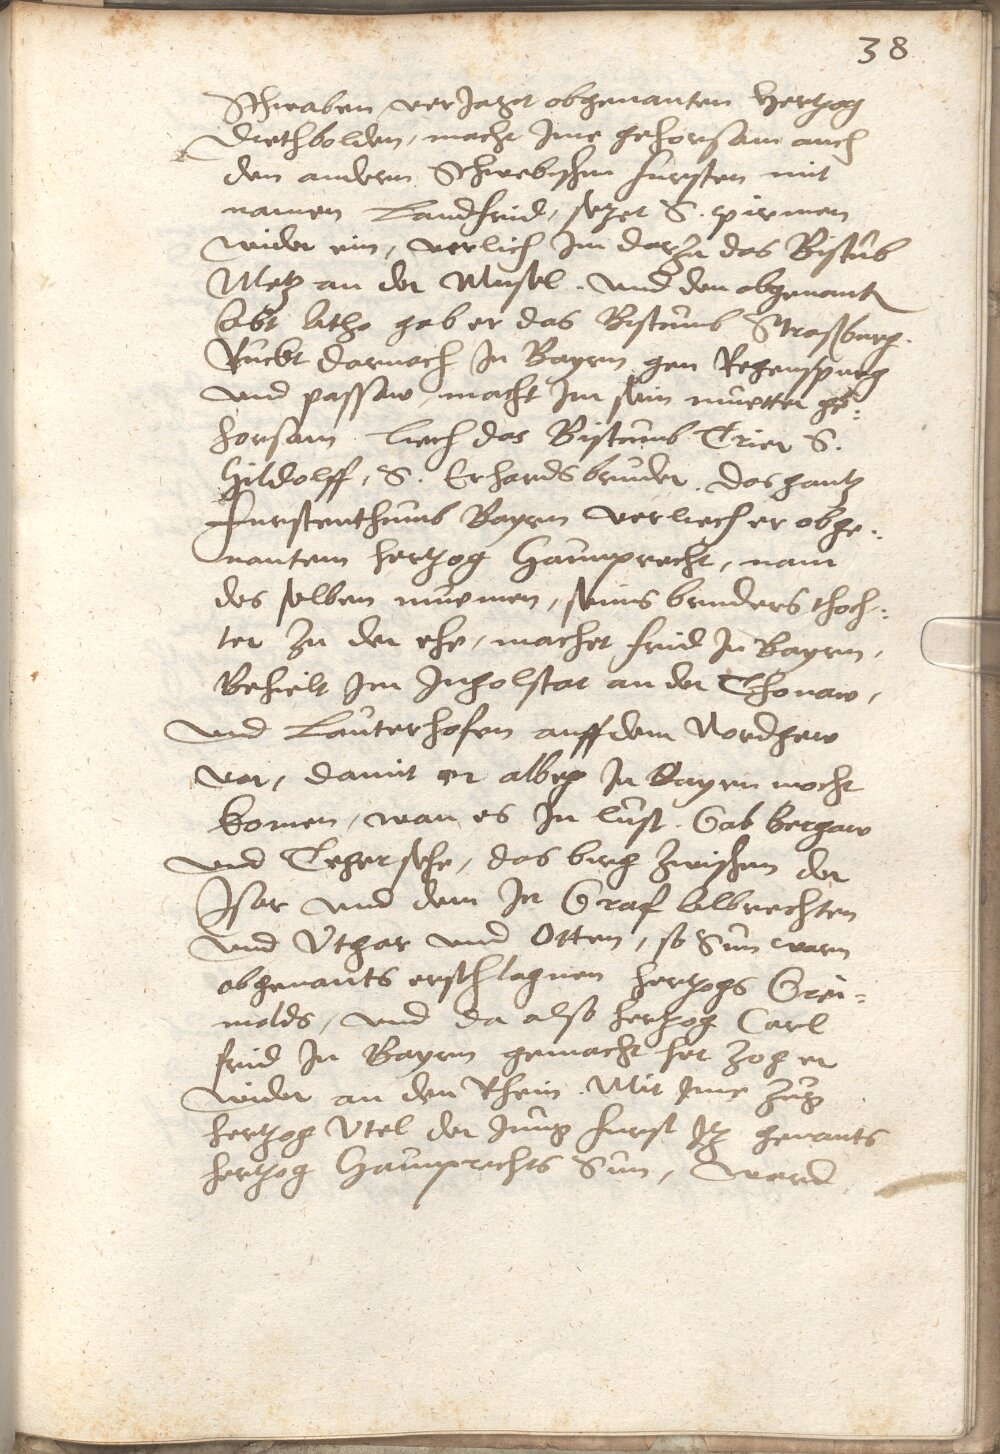 38
Schwaben, verJagt obgenanten Hertzog
Diethbolden, macht Jme gehorsam auch
den andern Schwebischen fursten mit
namen Landfrid, setzet S. pirmen
wider ein, verlich Jm darzu das Bistůb
Metz an der Musel. vnd den obgenant
Abt Etho gab er das Bistumb Straßburg.
Ruckt darnach Jn Bayrn gen Regenspurg
vnd passaw, macht Jm sein muetter ge:
horsam. liech das Bistumb Trier S.
Hildolff, S. Erhards bruder. das gantz
Furstenthumb Bayrn verliech er obge:
nantem hertzog Haumprecht, nam
des selben muemen, seins bruders thoch:
ter zu der ehe, machet frid Jn Bayrn,
Behielt Jm Jngolstat an der Thonaw,
vnd Lauterhofen auff dem Nordgew
vor, damit er albeg Jn Bayrn mocht
komen, wan es Jn lust. Gab Bergaw
vnd Tegersehe, das birg zwischen der
Jsar vnd dem Jn Graf Albrechten
vnd Utgar vnd Otten, so Sun warn
obgenants erschlagnen hertzogs Grei:
molds, vnd da also hertzog Carl
frid Jn Bayrn gemacht het zog er
wider an den Rhein. Mit Jme zug
hertzog Utel der Jung furst Jtz genants
hertzog Haumprechts Sun, ward